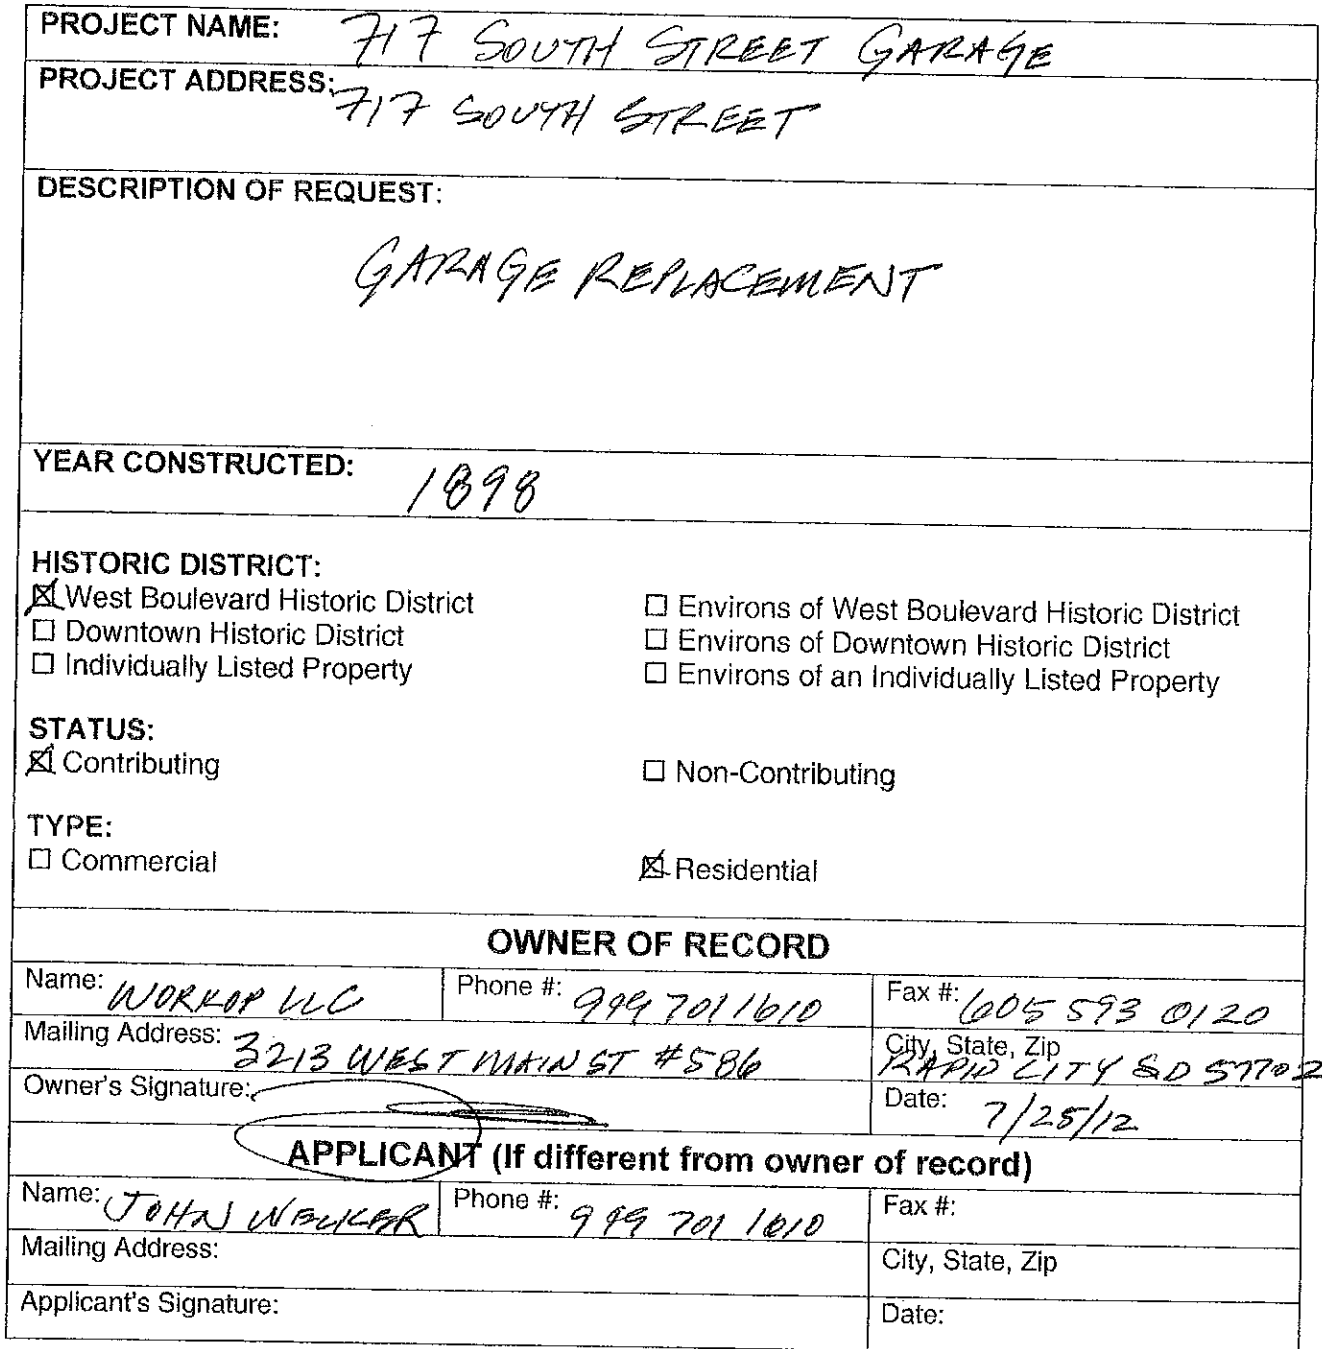 PROJECT NAME: 717 SOUTH STREET GARAGE
PROJECT ADDRESS: 717 SOUTH STREET
DESCRIPTION OF REQUEST:
GARAGE REPLACEMENT
YEAR CONSTRUCTED: 1898
HISTORIC DISTRICT:
☒ West Boulevard Historic District ☐ Environs of West Boulevard Historic District
☐ Downtown Historic District ☐ Environs of Downtown Historic District
☐ Individually Listed Property ☐ Environs of an Individually Listed Property
STATUS:
☒ Contributing ☐ Non-Contributing
TYPE:
☐ Commercial ☒ Residential
OWNER OF RECORD
Name: WORKOP LLC Phone #: 949 701 1610 Fax #: 605 593 0120
Mailing Address: 3213 WEST MAIN ST #586 City, State, Zip RAPID CITY SD 57702
Owner's Signature: Date: 7/25/12
APPLICANT (If different from owner of record)
Name: JOHN WELKER Phone #: 949 701 1610 Fax #:
Mailing Address: City, State, Zip
Applicant's Signature: Date: